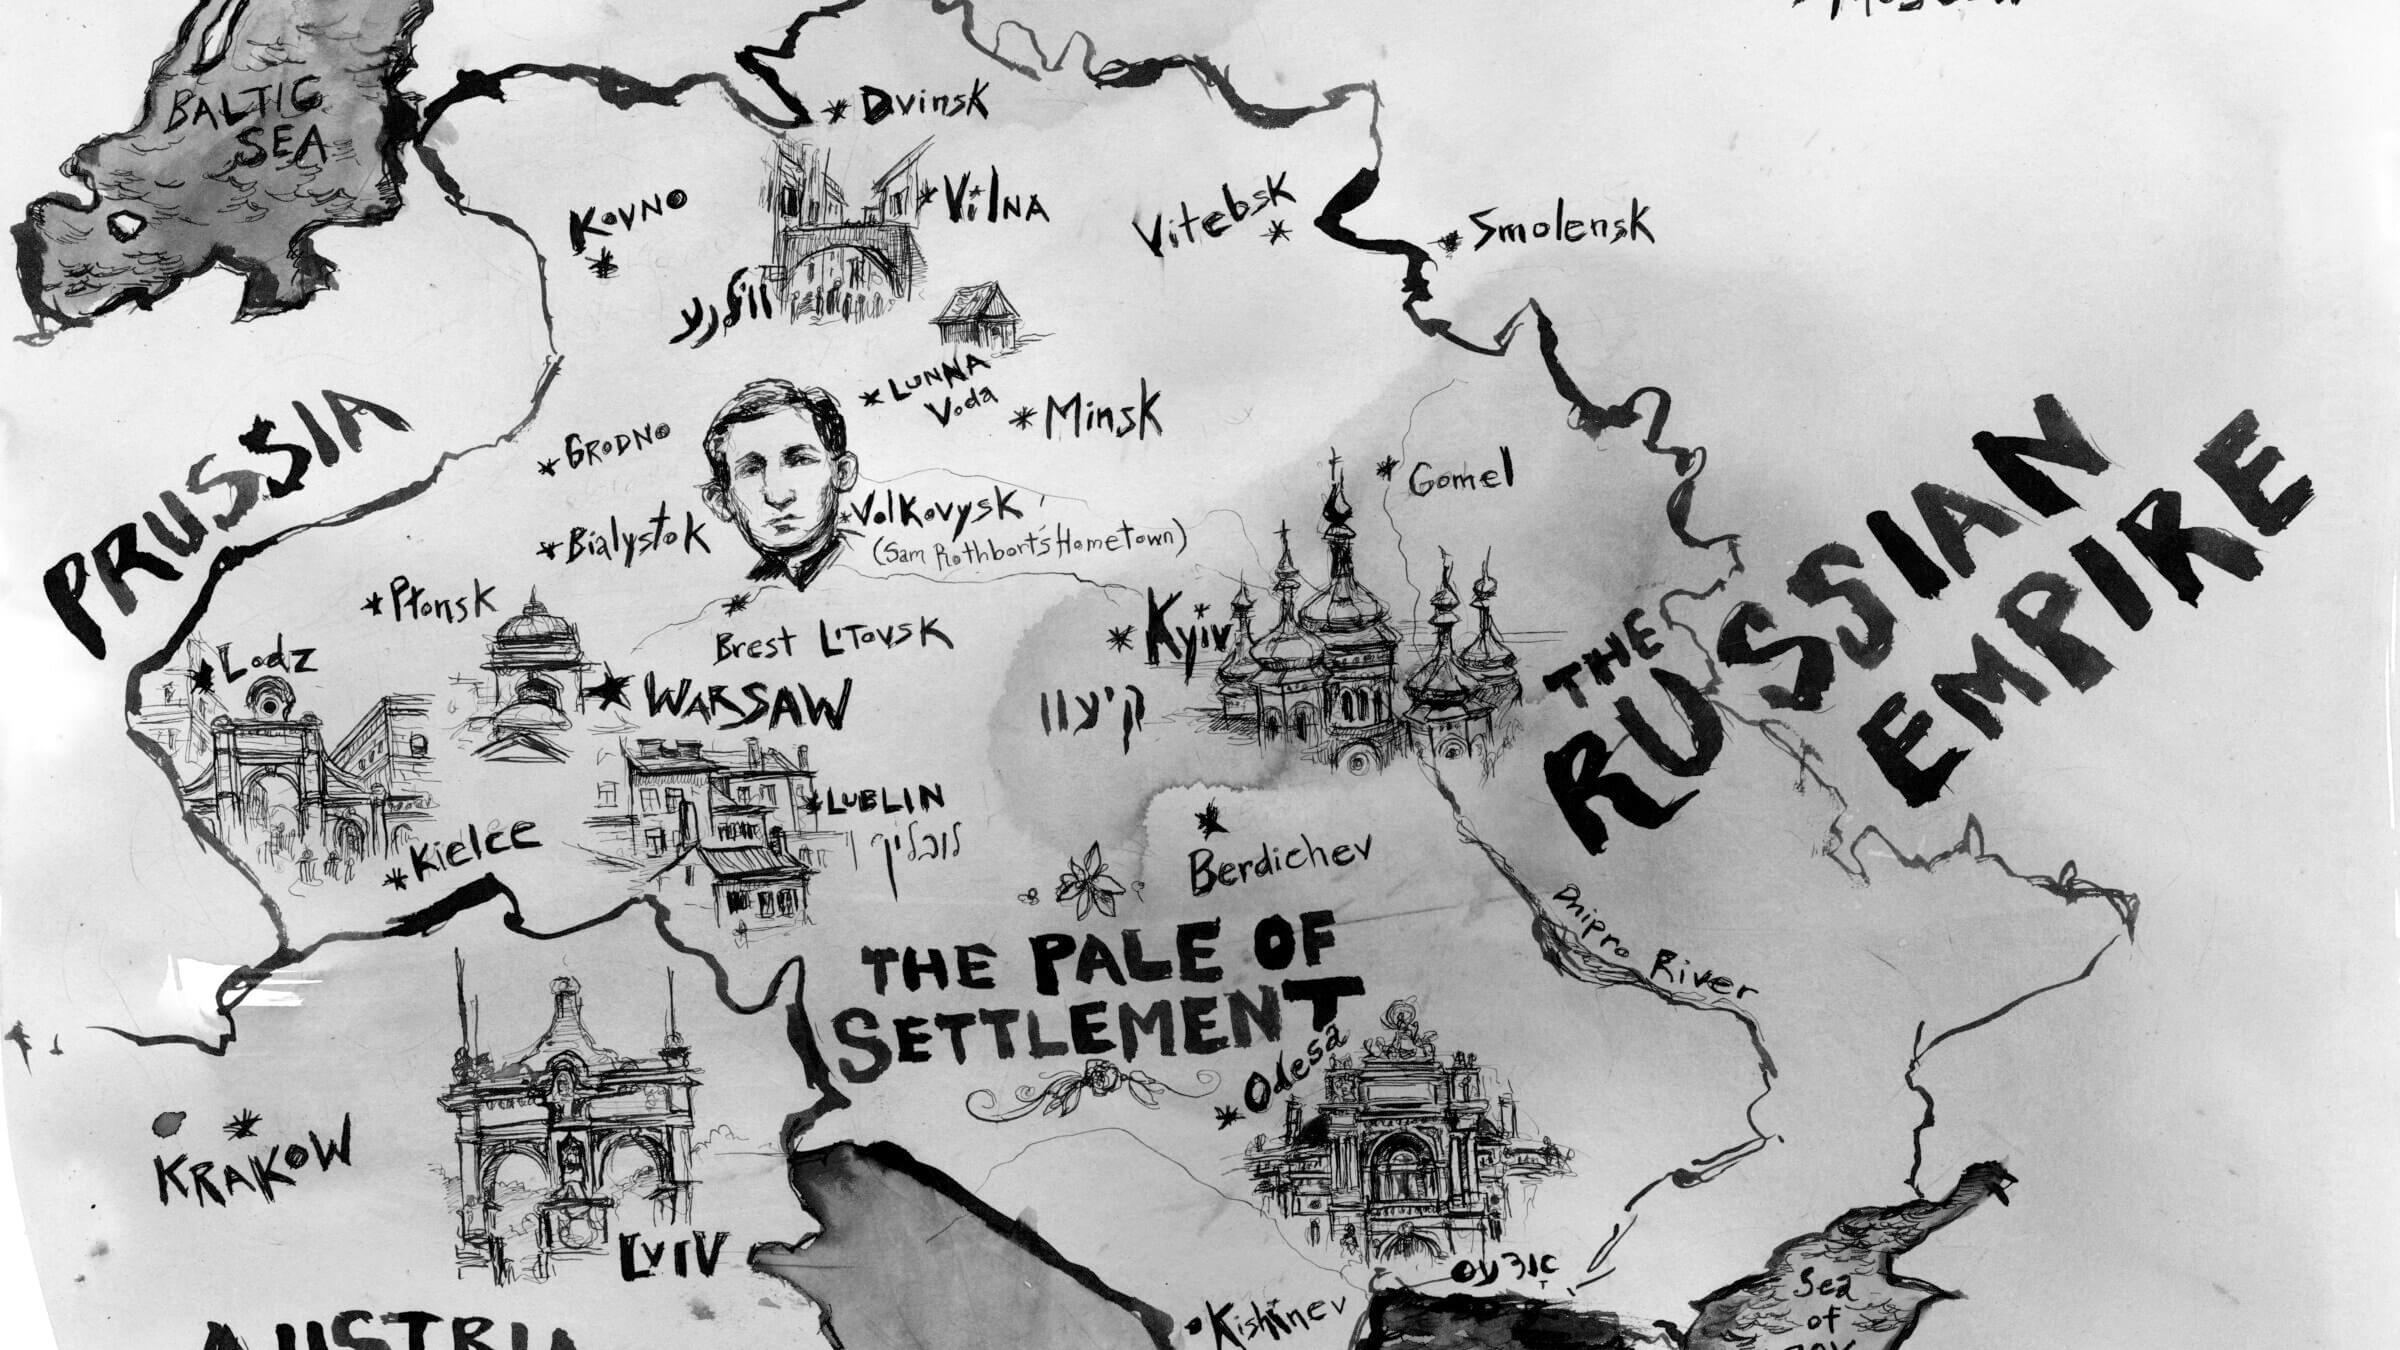 Moscow
BALTIC
SEA
Dvinsk
Kovno
Vilna
Vitebsk
Smolensk
ווילנע
LUNNA
Voda
Minsk
PRUSSIA
GRODNO
Gomel
Volkovysk
(Sam Rothbort's Hometown)
Bialystok
THE
RUSSIAN
EMPIRE
Brest Litovsk
Kyiv
קיעוו
Lodz
WARSAW
LUBLIN
לובלין
Kielce
Berdichev
Dnipro River
THE PALE OF
SETTLEMENT
Odesa
KRAKOW
LVIV
Kishinev
Sea
of
AUSTRIA